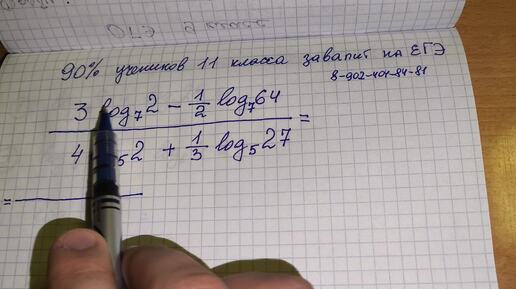 ОГЭ 9 класс
90% учеников 11 класса завалит на ЕГЭ
8-902-401-84-81
3 log₇2 - 1/2 log₇64
=
4 ₅2 + 1/3 log₅27
=